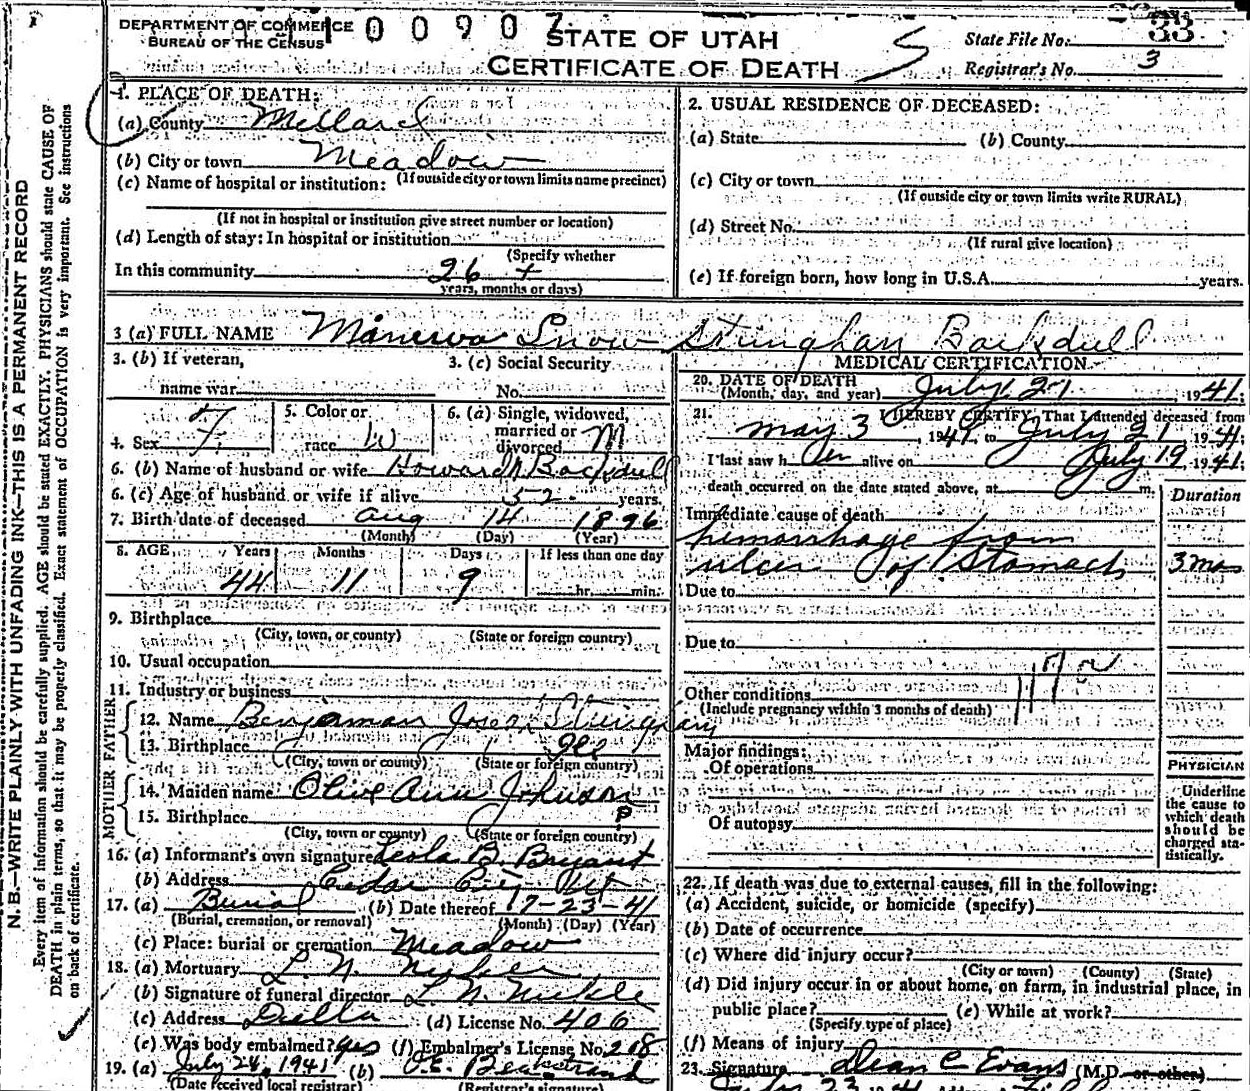 DEPARTMENT OF COMMERCE
BUREAU OF THE CENSUS
00907
STATE OF UTAH
CERTIFICATE OF DEATH
State File No. 33
Registrar's No. 3
N. B.—WRITE PLAINLY WITH UNFADING INK—THIS IS A PERMANENT RECORD
Every item of information should be carefully supplied. AGE should be stated EXACTLY. PHYSICIANS should state CAUSE OF
DEATH in plain terms, so that it may be properly classified. Exact statement of OCCUPATION is very important. See instructions
on back of certificate.
1. PLACE OF DEATH:
(a) County Millard
(b) City or town Meadow
(If outside city or town limits name precinct)
(c) Name of hospital or institution:
(If not in hospital or institution give street number or location)
(d) Length of stay: In hospital or institution
(Specify whether
In this community 26 +
years, months or days)
2. USUAL RESIDENCE OF DECEASED:
(a) State (b) County
(c) City or town
(If outside city or town limits write RURAL)
(d) Street No.
(If rural give location)
(e) If foreign born, how long in U.S.A. years.
3 (a) FULL NAME Minerva Snow Stringham Backdull
3. (b) If veteran,
name war
3. (c) Social Security
No.
4. Sex F
5. Color or
race W
6. (a) Single, widowed,
married or
divorced M
6. (b) Name of husband or wife Howard Backdull
6. (c) Age of husband or wife if alive 52 years.
7. Birth date of deceased Aug 14 1896
(Month) (Day) (Year)
8. AGE Years Months Days If less than one day
44 11 9 hr. min.
9. Birthplace
(City, town, or county) (State or foreign country)
10. Usual occupation
11. Industry or business
FATHER
12. Name Benjaman Joseph Stringham
13. Birthplace
(City, town or county) (State or foreign country)
MOTHER
14. Maiden name Olive Ann Johnson
15. Birthplace
(City, town or county) (State or foreign country)
16. (a) Informant's own signature Leola B. Bryant
(b) Address Cedar City Ut
17. (a) Burial (b) Date thereof 7-23-41
(Burial, cremation, or removal) (Month) (Day) (Year)
(c) Place: burial or cremation Meadow
18. (a) Mortuary L. N.
(b) Signature of funeral director L. N.
(c) Address Delta (d) License No. 406
(e) Was body embalmed? yes (f) Embalmer's License No. 208
19. (a) July 24, 1941 (b) Beckstrand
(Date received local registrar) (Registrar's signature)
MEDICAL CERTIFICATION
20. DATE OF DEATH
(Month, day, and year) July 21 1941;
21. I HEREBY CERTIFY, That I attended deceased from
May 3, 1941, to July 21 1941;
I last saw her alive on July 19, 1941;
death occurred on the date stated above, at m.
Duration
Immediate cause of death
hemorrhage from
ulcer of Stomach 3 mos
Due to
Due to
Other conditions
(Include pregnancy within 3 months of death)
Major findings:
Of operations
Of autopsy
PHYSICIAN
Underline
the cause to
which death
should be
charged sta-
tistically.
22. If death was due to external causes, fill in the following:
(a) Accident, suicide, or homicide (specify)
(b) Date of occurrence
(c) Where did injury occur?
(City or town) (County) (State)
(d) Did injury occur in or about home, on farm, in industrial place, in
public place? (e) While at work?
(Specify type of place)
(f) Means of injury
23. Signature Dean C Evans (M.D. or other)